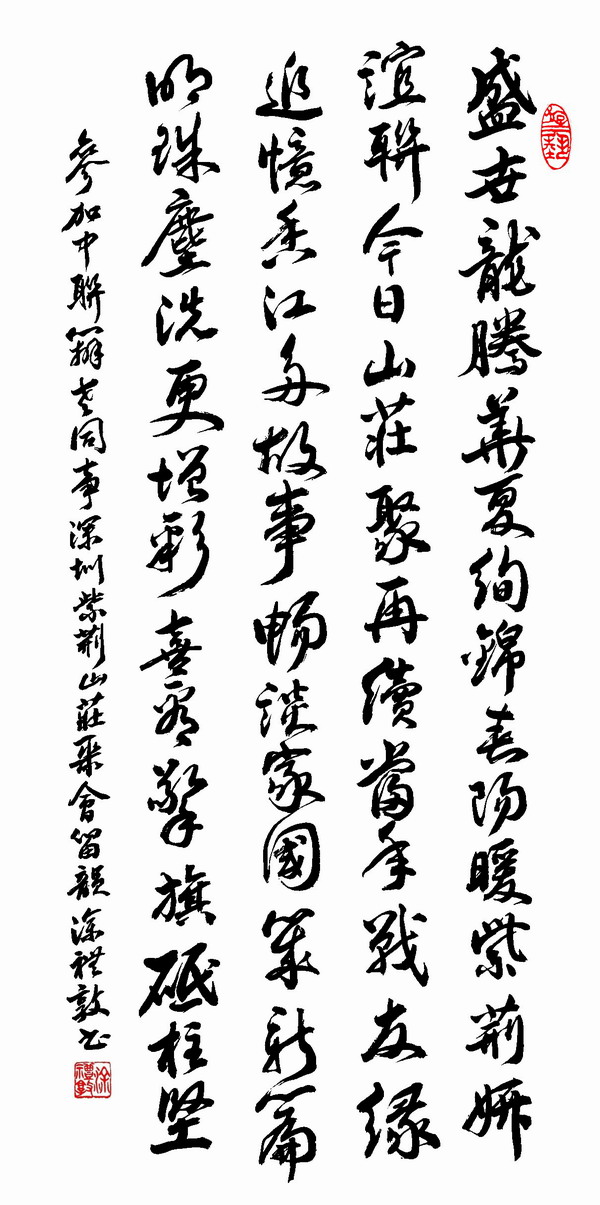 盛世龍騰華夏絢錦春陽暖紫荊妍
誼聯今日山莊聚再續當年戰友緣
追憶香江多故事暢談家國策新篇
明珠塵洗更增彩喜看擎旗砥柱堅
參加中聯辦老同事深圳紫荊山莊聚會留韻涂禮敦書
涂禮敦